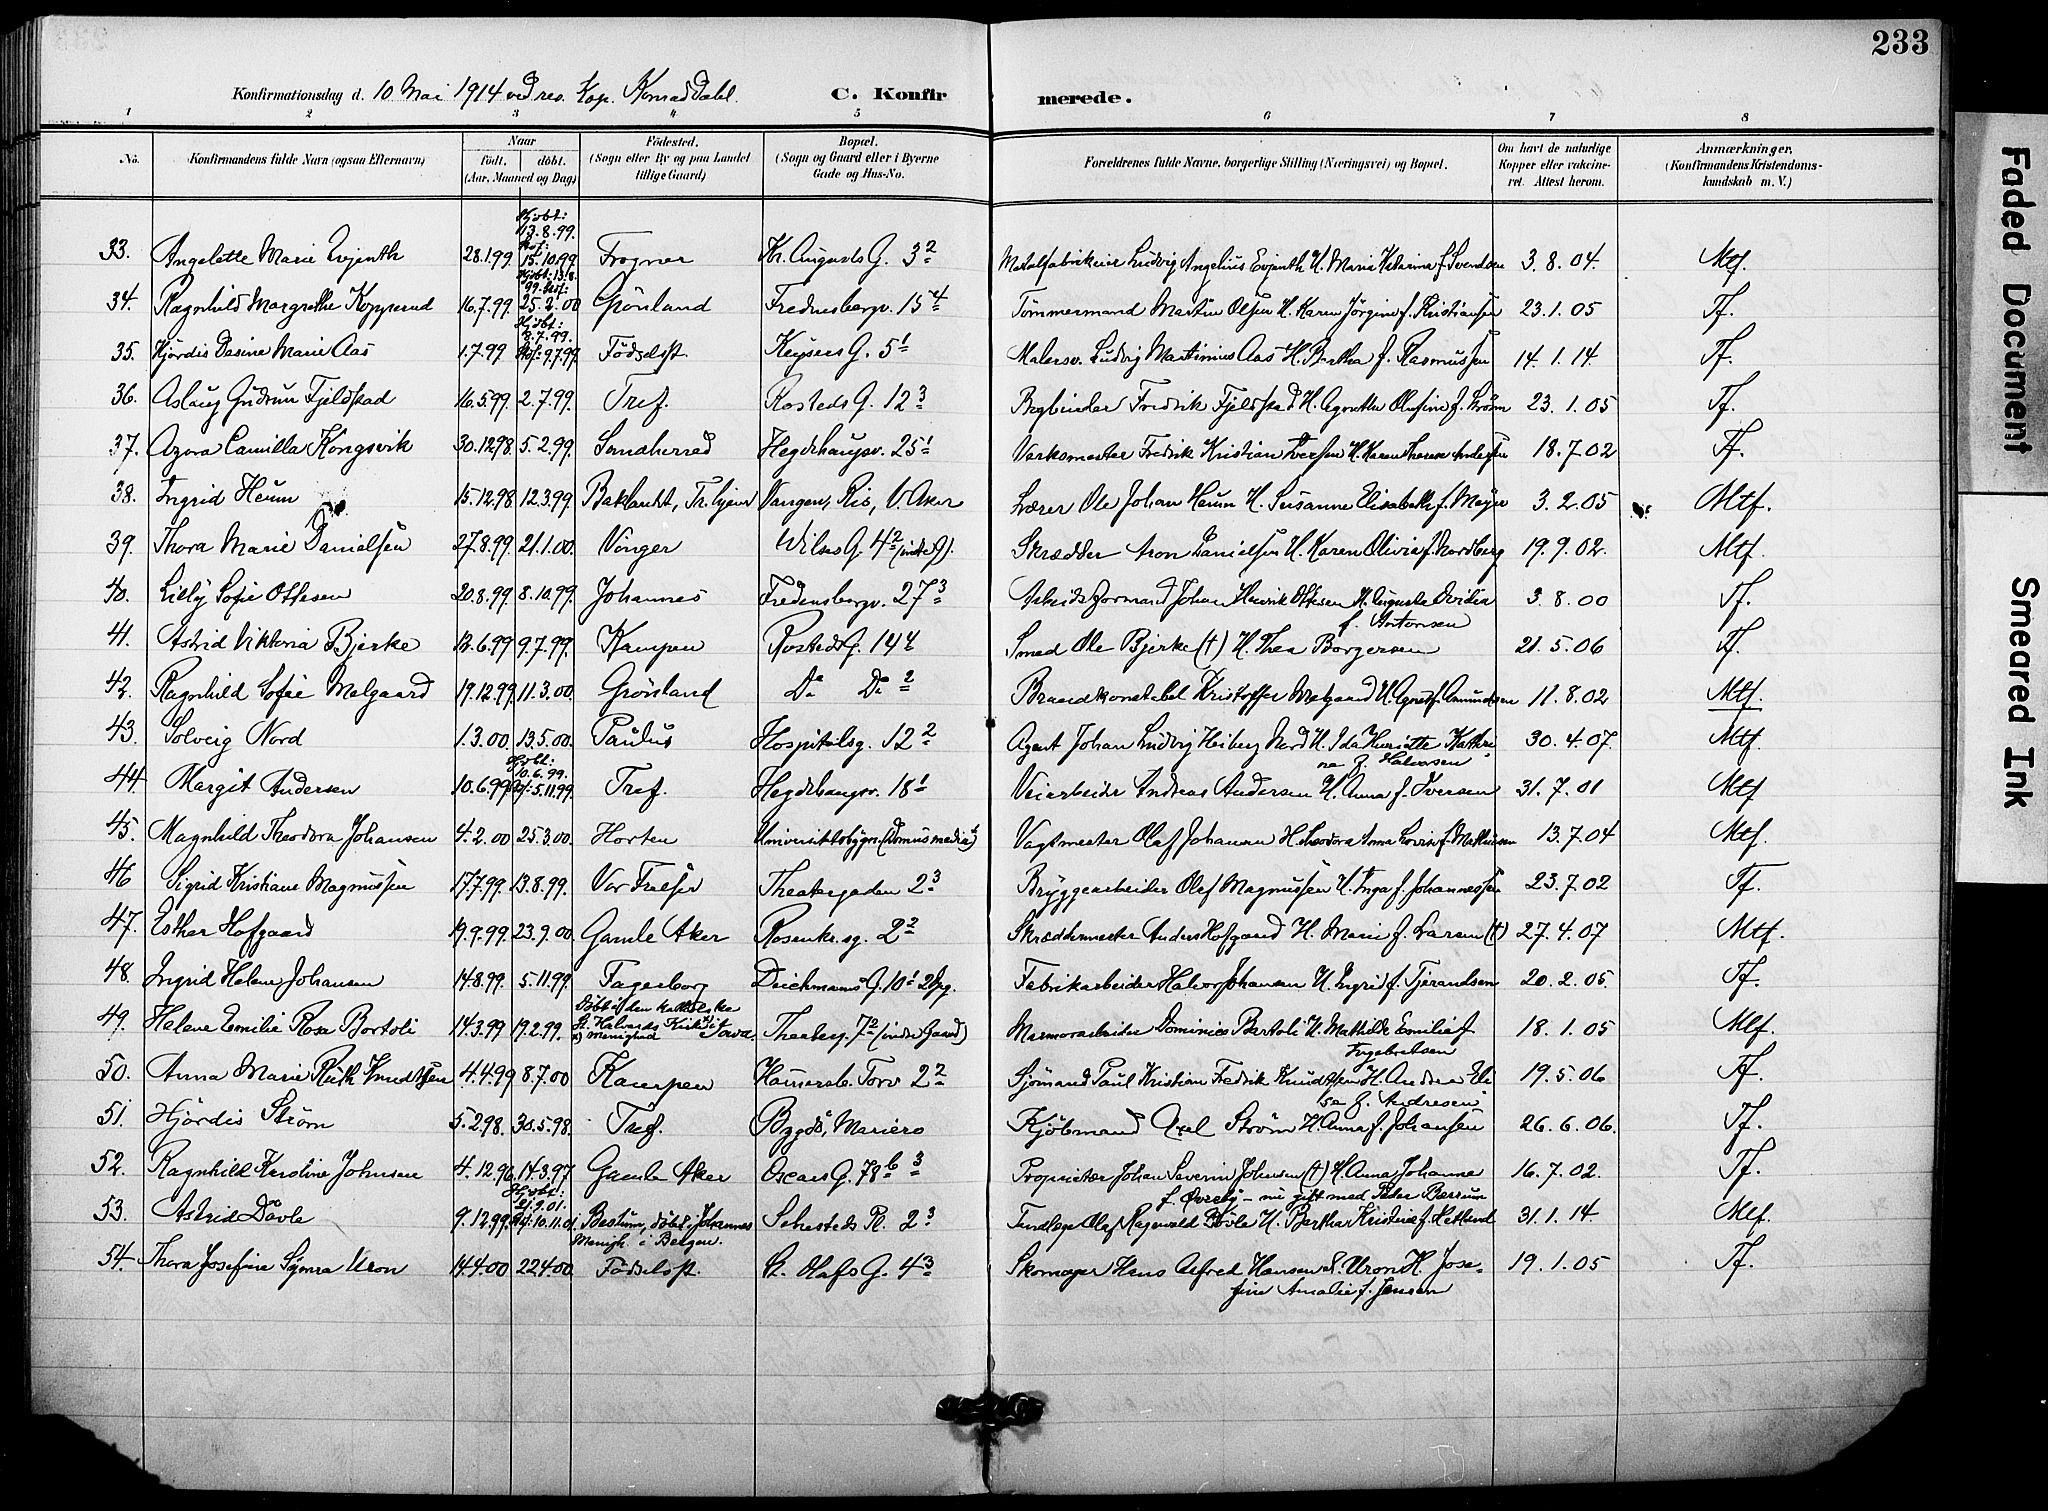 233
Konfirmationsdag d. 10 Mai 1914 ved res. Kap. Konrad Dahl. C. Konfir merede.
1 2 3 4 5 6 7 8
No. Konfirmandens fulde Navn (ogsaa Efternavn) Naar födt. döbt. (Aar, Maaned og Dag) Födested. (Sogn eller By og paa Landet tillige Gaard) Bopæl. (Sogn og Gaard eller i Byerne Gade og Hus-No. Forældrenes fulde Navne, borgerlige Stilling (Næringsvei) og Bopæl. Om havt de naturlige Kopper eller vakcineret. Attest herom. Anmærkninger, (Konfirmandens Kristendomskundskab m. V.)
33. Angelette Marie Evjenth 28.1.99 Hjdbt: 13.8.99. Stf: 15.10.99 Frogner Kr. Augusts G. 3² Metalfabrikeier Ludvig Angelius Evjenth H. Maria Katarina f. Svendsen 3.8.04. Mtf.
34. Ragnhild Margrethe Kopperud 16.7.99 Hjdbt: 13.8.99. Stf: 25.2.00 Grönland Fredensborgv. 15⁴ Tömmermand Martin Olsen H. Karen Jörgine f. Kristiansen 23.1.05 Tf.
35. Hjördis Dasine Marie Aas 1.7.99 Hjdbt: 2.7.99. Stf: 9.7.99 Födselsst. Keysers G. 5¹ Malersv. Ludvig Martinius Aas H. Bertha f. Rasmussen 14.1.14. Tf.
36. Aslaug Gudrun Fjeldstad 16.5.99 2.7.99. Tref. Rosteds G. 12³ Bogbinder Fredrik Fjeldstad H. Agnethe Olufine f. Ström 23.1.05 Tf.
37. Azora Camilla Kongsvik 30.12.98 5.2.99. Sandherred Hegdehaugsv. 25¹ Verksmester Fredrik Kristian Iversen H. Karen Therese Andersen 18.7.02 Tf.
38. Ingrid Heum 15.12.98 12.3.99. Baklandet, Tr.hjem Vangen, Ris, V. Aker Lærer Ole Johan Heum H. Susanne Elisabeth f. Meyer 3.2.05 Mtf.
39. Thora Marie Danielsen 27.8.99 21.1.00. Vånger Wilses G. 4² (indre G). Skrædder Aron Danielsen H. Karen Olivia f. Nordberg 19.9.02. Mtf.
40. Lilly Sofie Ottesen 20.8.99 8.10.99. Johannes Fredensborgv. 27³ Arbeidsformand Johan Henrik Ottesen H. Augusta Ovidia 3.8.00 Tf.
f. Gustavsen
41. Astrid Viktoria Bjerke 12.6.99 9.7.99. Kampen Rosteds G. 14⁴ Smed Ole Bjerke (†) H. Thea Borgersen 21.5.06 Tf.
42. Ragnhild Sofie Melgaard 19.12.99 11.3.00. Grönland Do Do 2 Brandkonstabel Kristoffer Melgaard H. Agnes f. Amundsen 11.8.02 Mtf.
43. Solveig Nord 1.3.00. 13.5.00. Paulus Hospitalsg. 12² Agent Johan Ludvig Heiberg Nord H. Ida Henriette Kathri- 30.4.07. Mtf.
ne f. Halvorsen
44 Margit Andersen 10.6.99 Hjdbt: 10.6.99. Stf: 5.11.99. Tref. Hegdehaugsv. 18¹ Veiarbeider Andreas Andersen H. Anna f. Iversen 31.7.01 Mtf
45. Magnhild Theodora Johansen 4.2.00 25.3.00. Horten Universitetsbygn. (Domus media) Vagtmester Olaf Johansen H. Theodora Anna Lovise f. Mathisen 13.7.04 Mtf.
46 Sigrid Kristiane Magnussen 17.7.99 13.8.99. Vor Frelser Theatergaden 2³ Bryggearbeider Olef Magnussen H. Inga f. Johannessen 23.7.02 Tf.
47. Esther Hofgaard 19.9.99. 23.9.00 Gamle Aker Rosenkr.sg. 2² Skræddermester Anders Hofgaard H. Marie f. Larsen (†) 27.4.07 Mtf.
48. Ingrid Helene Johansen 14.8.99. 5.11.99. Fagerborg Deichmans G. 10¹ 2 Opg. Fabrikarbeider Halvor Johansen H. Ingrid f. Tjerandsen 20.2.05. Tf.
49. Helene Emilie Rosa Bortoli 14.3.99 19.2.99. Döbt i den katholske St. Halvards Kirke i Towa. x) menighed Theaterg. 7² (indre Gaard) Marmorarbeider Dominico Bertoli H. Mathilde Emilie f. 18.1.05 Mtf.
Ingebretsen
50. Anna Marie Ruth Knudtsen 4.4.99 8.7.00 Kampen Hamersb. Torv 2² Sjömand Paul Kristian Fredrik Knudtsen H. Andrea Eli- 19.5.06 Tf.
sa f. Andresen
51. Hjördis Ström 5.2.98. 30.5.98. Tref. Bygdö, Mariero Kjöbmand Axel Ström H. Anna f. Johansen 26.6.06. Tf.
52. Ragnhild Karoline Johnsen 4.12.96 14.3.97 Gamle Aker Oscars G. 78b³ Proprietær Johan Severin Johnsen (†) H. Anna Johanne 16.7.02. Tf.
f. Övreby - nu gift med Peder Berrum
53. Astrid Dövle 9.12.99 Hjdbt: 21.9.01. Stf. 10.11.01 Bestum, döbt i Johannes Menigh. i Bergen. Sehesteds Pl. 2³ Tandlæge Olaf Ragnvald Dövle H. Bertha Kristine f. Hetland 31.1.14. Mtf.
54. Thora Josefine Synnra Uron 14.4.00 22.4.00. Födselsst. St. Olafs G. 4³ Skomager Hans Alfred Hansen S. Uron H. Jose- 19.1.05 Tf.
fine Amalie f. Jensen
Faded Document
Smeared Ink